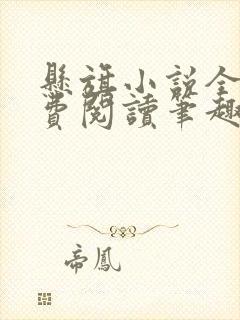 懸旗小說全
費閱讀筆趣
帝鳳